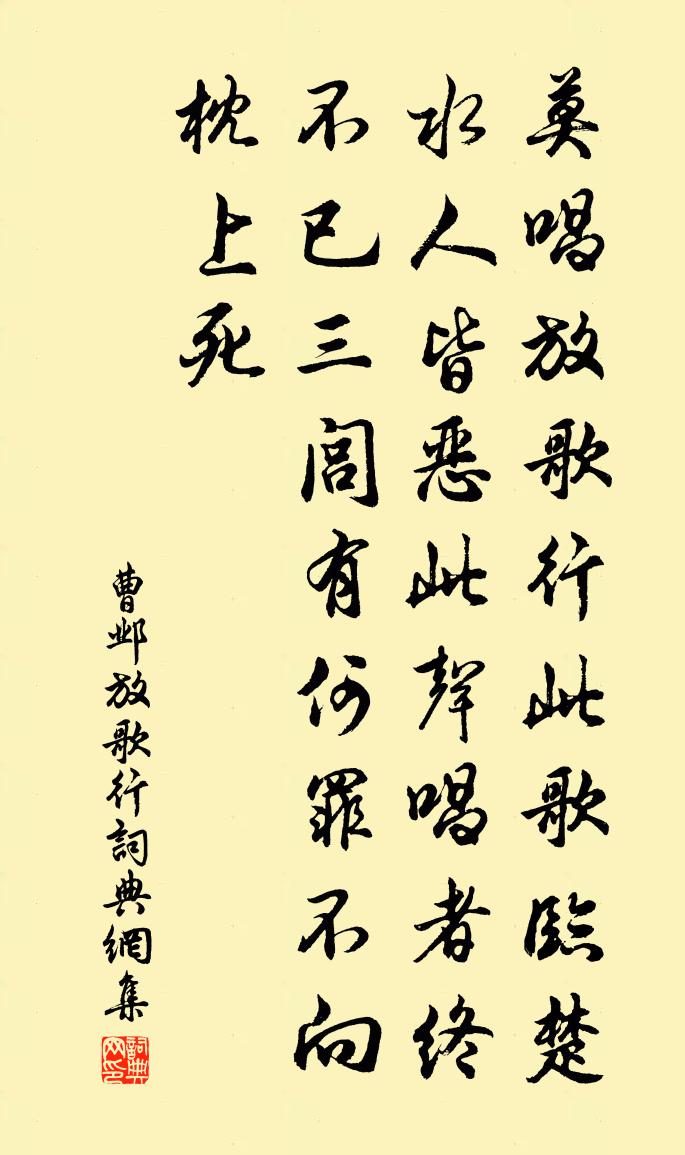 莫唱放歌行此歌臨楚
水人皆惡此聲唱者終
不已三閭有何罪不向
枕上死
曹邺放歌行詞典網集
詞典网印